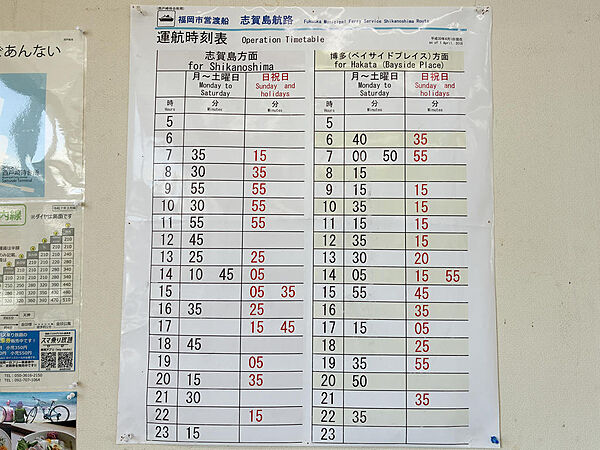 福岡市営渡船 志賀島航路 Fukuoka Municipal Ferry Service Shikanoshima Route
運航時刻表 Operation Timetable
as of 1 April, 2018
志賀島方面
for Shikanoshima
月～土曜日 日祝日
Monday to Saturday Sunday and holidays
時 分 分
Hours Minutes Minutes
5
6
7 35 15
8 30 35
9 55 55
10 30 55
11 55 55
12 45
13 25 25
14 10 45 05
15 05 35
16 35 25
17 15 45
18 45
19 05
20 15 35
21 30
22 15
23 15
博多(ベイサイドプレイス)方面
for Hakata (Bayside Place)
月～土曜日 日祝日
Monday to Saturday Sunday and holidays
時 分 分
Hours Minutes Minutes
5
6 40 35
7 00 50 55
8 15
9 15 15
10 35 15
11 15 15
12 35 15
13 30 20
14 05 15 55
15 55 45
16 35
17 15 05
18 25
19 35 55
20 50
21 35
22 35
23
であんない
内線
※ダイヤは裏面です
TEL：050-3616-2150
TEL：092-707-1064